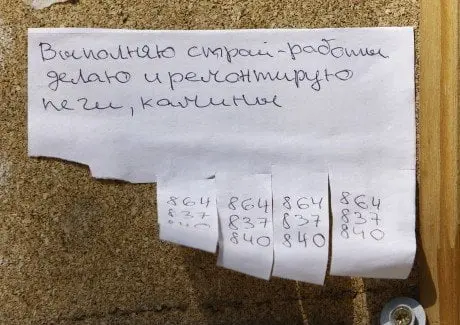 Выполняю страй-работы
делаю и ремонтирую
печи, камины
864 864 864 864
837 837 837 837
840 840 840 840